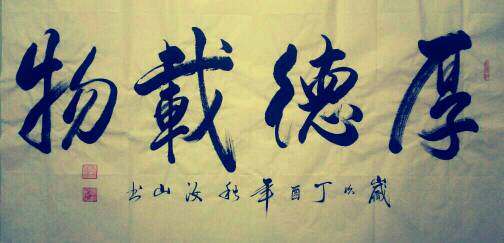 厚德載物
歲次丁酉年秋汝山书